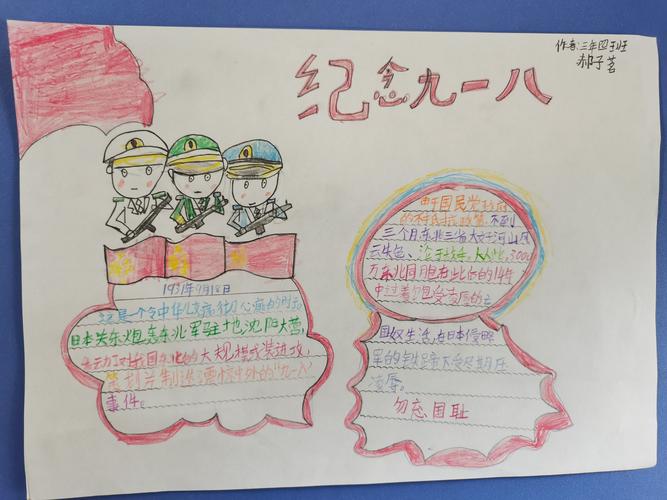 作者:三年四班
郝子茗
纪念九一八
1931年9月18日
这是一个令中华儿女痛彻心扉的时刻
日本关东炮轰东北军驻地沈阳大营,
东北的大规模武装进攻,
策划并制造了震惊中外的"九一八"
事件。
由于国民党政府
的不抵抗政策,不到
三个月,东北三省大好河山风
云失色、沦于敌手。从此,3000
万东北同胞在此后的14年
中过着饱受凌辱的亡
国奴生活,在日本侵略
军的铁蹄下受尽欺压
凌辱。
勿忘国耻